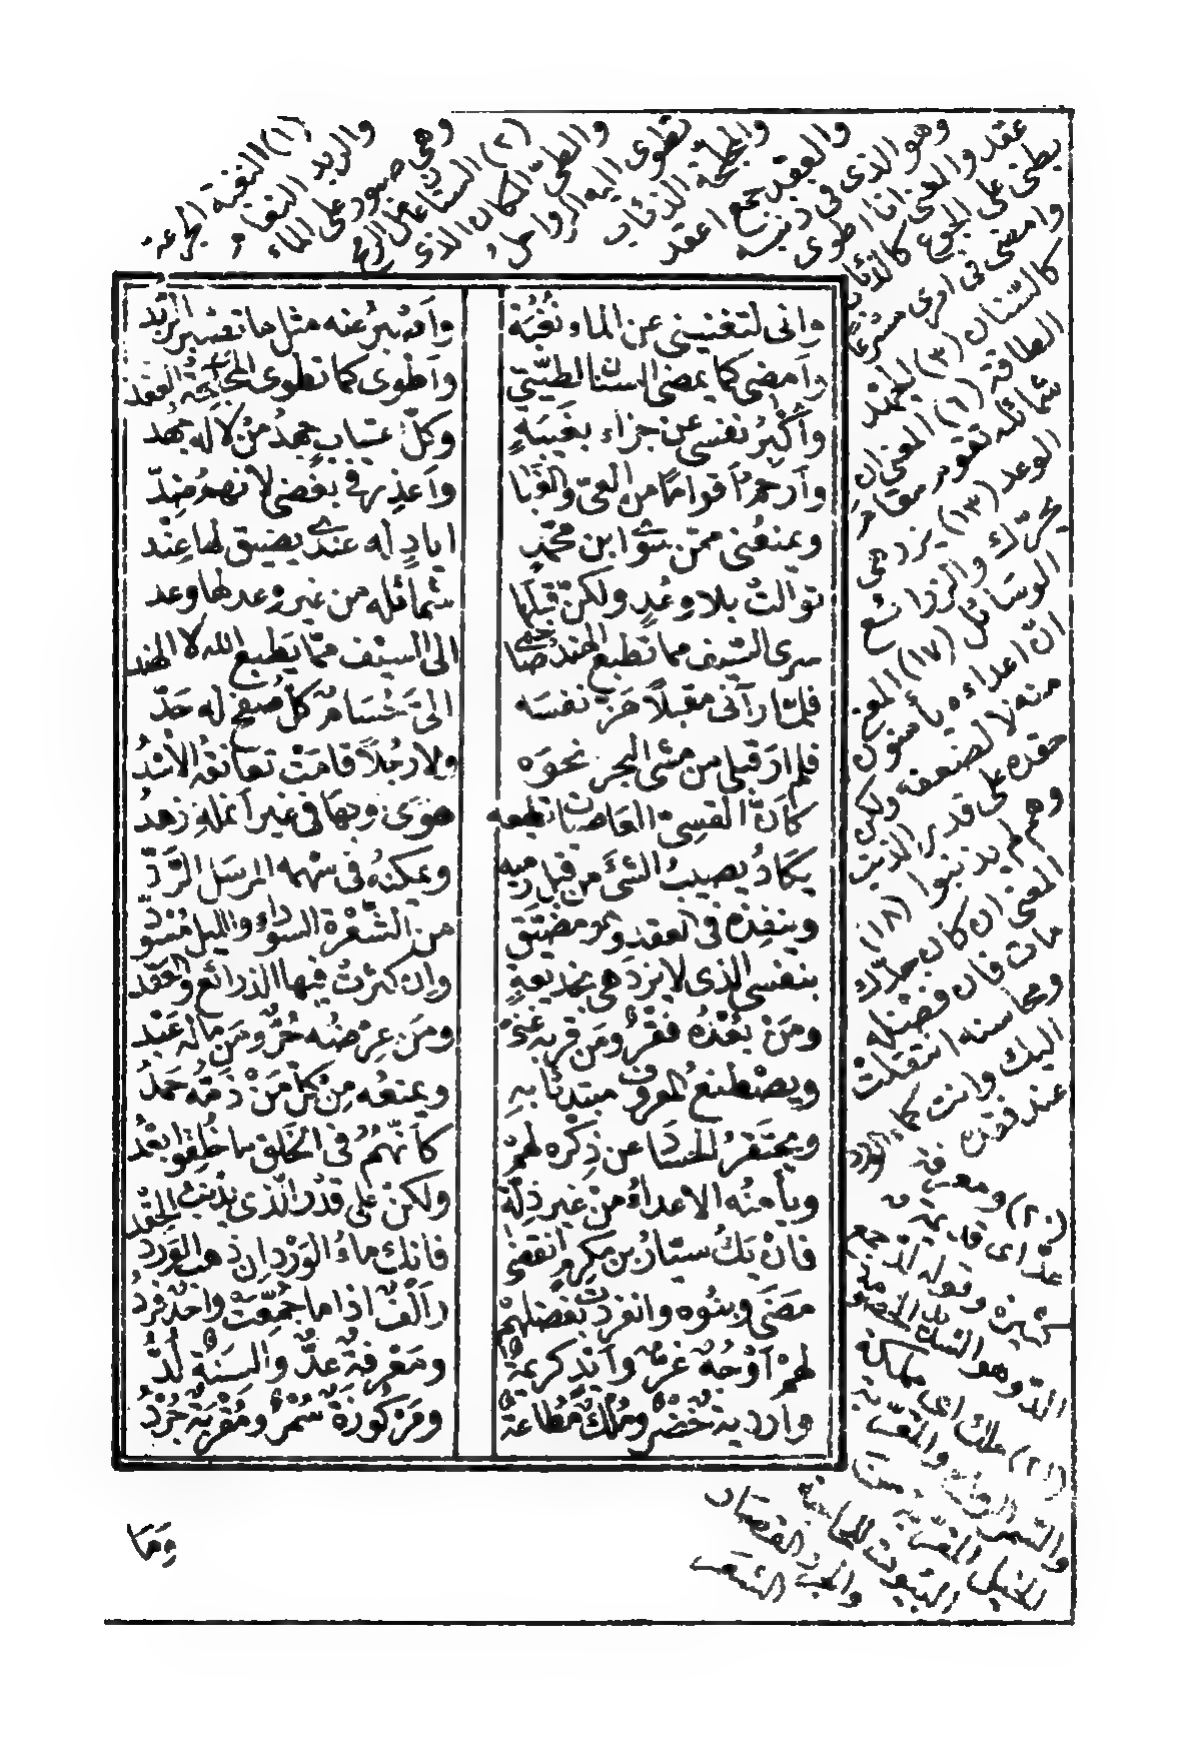 وإنى لتغنينى عن الماء نُغْبَة وأصبر عنه مثل ما تصبر الرُّبْد
وأمضى كما يمضى السنان لطيّتى وأطوى كما تطوى المجلّحة العقد
وأُكْبِرُ نفسى عن جزاء بغيبَةٍ وكلّ اغتياب جهدُ مَنْ لا له جهدُ
وأرحمُ أقوامًا من العىّ والغَبَا وأعذر فى بغضى لأنهمُ ضِدّ
ويمنعُنى ممّن سِوَى ابن محمّدٍ أيادٍ له عندى يضيق لها عِنْد
توالتْ بلا وعْدٍ ولكنّ قبلَها شمائله من غير وعد لها وعد
سرى السّيف مما تطبع الهندُ صاحبى إلى السيْف ممّا يَطبع الله لا الهند
فلمّا رآنى مقبلًا هزّ نفسَه إلىّ حُسَام كلّ صفحٍ له حَدّ
فلم أرَ قبلى من مشى البحر نحوَه ولا رجُلاً قامَتْ تعانقُه الأُسْدُ
كأنّ القسِىّ العاصيات تطيعه هوًى وبها فى غير أنمله زهدُ
يكادُ يصيب الشئَ من قبل رميه ويمكنهُ فى سهمه المرسَل الرَّدّ
وينفِذه فى العقد وهو مضيّق من الشّعْرة السوداء والليل مُسْوَدّ
بنفسى الذى لا يزدَهى بخديعةٍ وإن كثرتْ فيها الذرائع والقَصْد
ومَنْ بُعْدُه فقْرٌ ومَن قربه غِنًى ومَن عِرْضُه حُرٌّ ومَن مالُه عَبْد
ويصْطنعُ المعروفَ مبتدئًا به ويمنعُه مِنْ كلّ مَنْ ذمّه حَمْدُ
ويحتَقرُ الحسّادَ عن ذِكره لهمْ كأنّهمُ فى الخَلق ما خُلِقوا بَعْدُ
ويأمنُه الأعداءُ مِنْ غير ذلّة ولكنْ على قَدْر الّذى يُذْنبُ الحِقْد
فإنْ يَكُ سيّارُ بن مكرمٍ انقضى فإنّك ماءُ الوَرْد إن ذهب الوَرد
مضَى وبنُوه وانفردْتَ بفضلهمْ وأَلْفٌ إذا ما جُمِّعَتْ واحدٌ فَردُ
لهمْ أوْجُهٌ غرٌّ وأيْدٍ كريمةٌ ومَعْرفةٌ عِدٌّ وألسنةٌ لُدُّ
وأرديةٌ خُضْرٌ ومُلْكٌ مُطاعةٌ ومركوزةٌ سُمْرٌ ومُقْرَبةٌ جُرْدُ
(١) النغبة الجرعه
والربد النعام
وهى صبور على الماء
(٢) السنان نصل الرمح
والطىّ المكان الذى
تطوى اليه الرواحل
والمجلّحة الذئاب
والعقد جمع اعقد
وهو الذى فى ذنبه
عقد والمعنى انا اطوى
بطنى على الجوع كالذئاب
وامضى فى امرى مسرعا
كالسّنان (٣) الجهد
الطاقة (٦) المعنى ان
شمائله تقوم مقام
الوعد (١٣) يزدهى
يحرّك والذرائع
الوسائل (١٧) المعنى
انّ اعداءه يأمنون
منه لا لضعفه ولكن
حقده على قدر الذنب
وهم لم يذنبوا (١٨)
المعنى ان كان جدّك
مات فان فضله
ومحاسنه انتقلت
اليك وانت كماء الورد
عند فقده
(٢٠) ومعرفة
عدّ اى قديمة
وقوله لد جمع
الدّ وهو الشديد الخصومة
(٢١) ملك اى مملكة
والسمر الرماح والمقربة من
الخيل المقرّبة من
البيوت للحاجة
والجرد القصار
الشعر
وَمَا